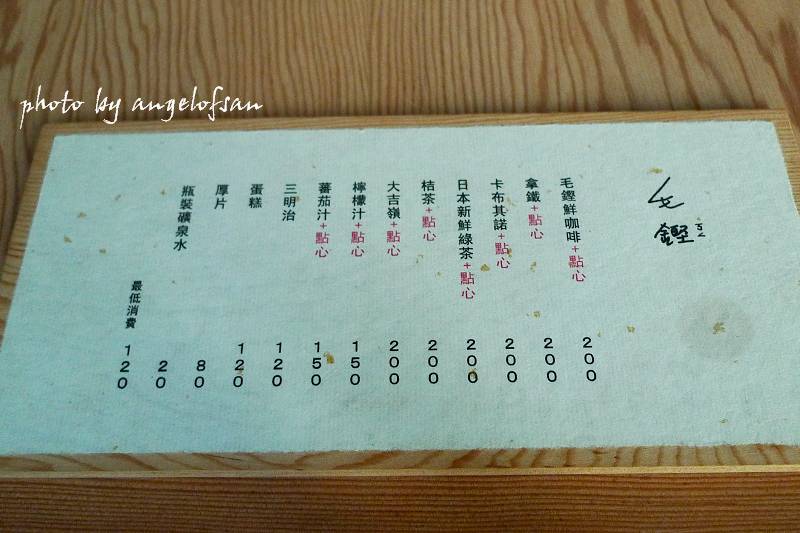 photo by angelofsan
毛鏗
毛鏗鮮咖啡+點心 200
拿鐵+點心 200
卡布其諾+點心 200
日本新鮮綠茶+點心 200
桔茶+點心 200
大吉嶺+點心 200
檸檬汁+點心 150
蕃茄汁+點心 150
三明治 120
蛋糕 120
厚片 80
瓶裝礦泉水 20
最低消費 120